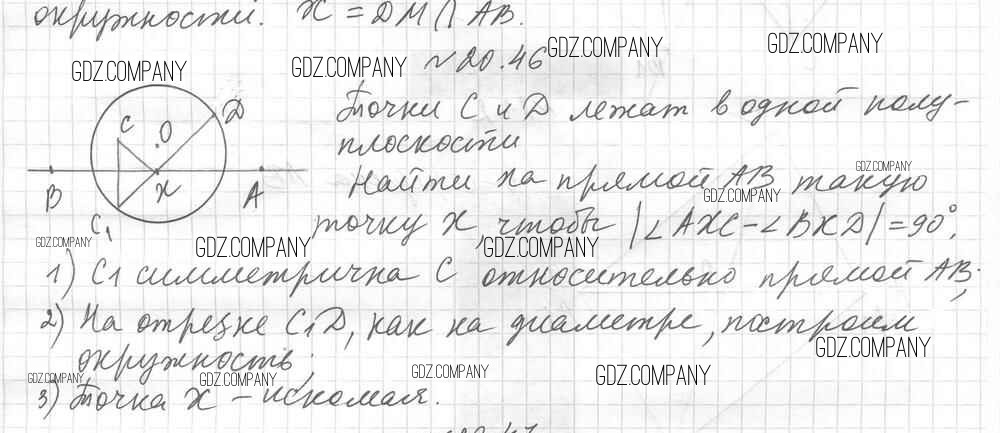 окружности. X = DM ∩ AB.
~20.46
Точки C и D лежат в одной полу-
плоскости
Найти на прямой AB такую
точку X, чтобы |∠AXC - ∠BXD| = 90°.
C
O
D
B
X
A
C₁
1) C1 симметрична C относительно прямой AB;
2) На отрезке C₁D, как на диаметре, построим
окружность;
3) Точка X – искомая.
GDZ.COMPANY
GDZ.COMPANY
GDZ.COMPANY
GDZ.COMPANY
GDZ.COMPANY
GDZ.COMPANY
GDZ.COMPANY
GDZ.COMPANY
GDZ.COMPANY
GDZ.COMPANY
GDZ.COMPANY
GDZ.COMPANY
GDZ.COMPANY
GDZ.COMPANY